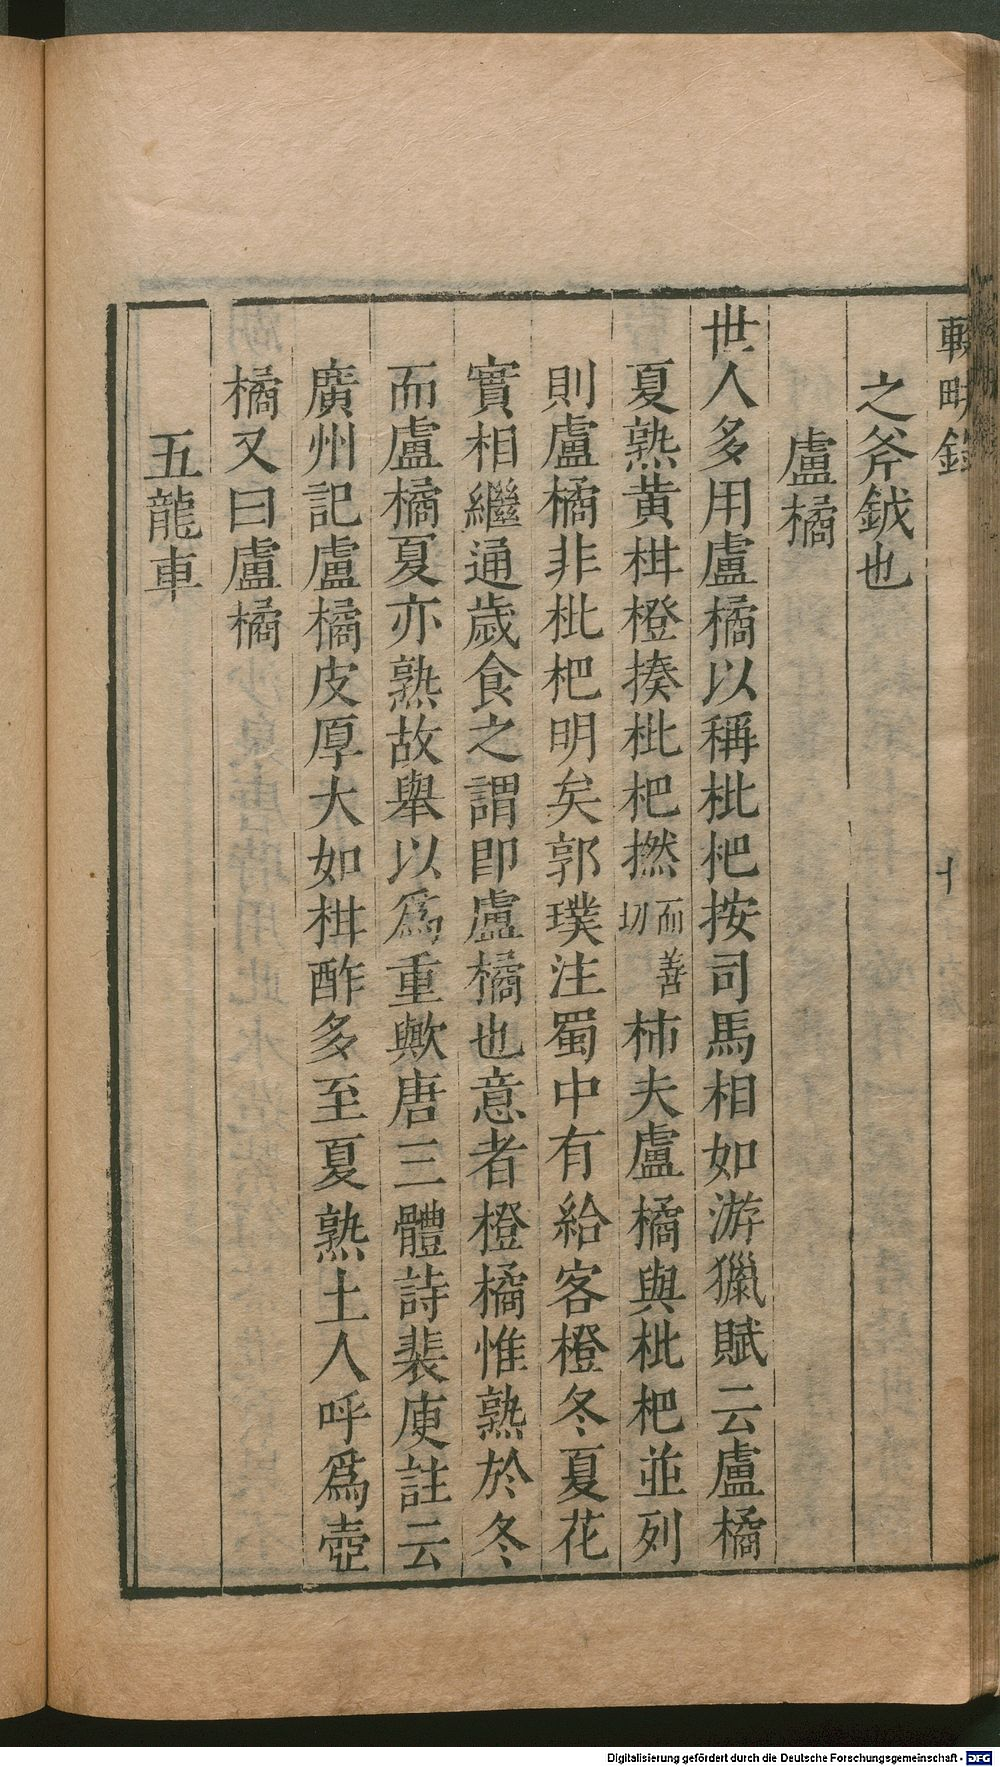 輟畊錄
十
之斧鉞也
盧橘
世人多用盧橘以稱枇杷按司馬相如游獵賦云盧橘
夏熟黃柑橙揍枇杷撚而善切柿夫盧橘與枇杷並列
則盧橘非枇杷明矣郭璞注蜀中有給客橙冬夏花
實相繼通歲食之謂即盧橘也意者橙橘惟熟於冬
而盧橘夏亦熟故舉以爲重歟唐三體詩裴庾註云
廣州記盧橘皮厚大如柑酢多至夏熟土人呼爲壺
橘又曰盧橘
五龍車
Digitalisierung gefördert durch die Deutsche Forschungsgemeinschaft - DFG